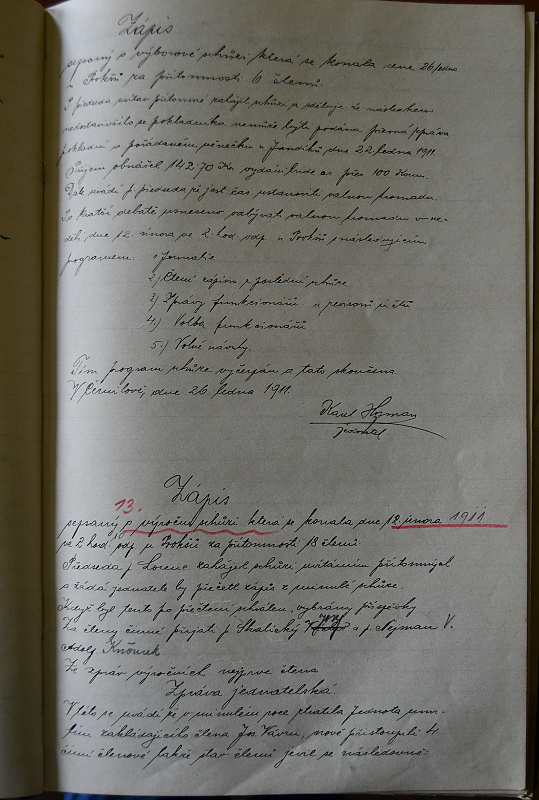 Zápis
sepsaný o výborové schůzi která se konala dne 26. ledna
u Prokšů za přítomnosti 6 členů.
P. předseda uvítav přítomné zahájil schůzi a sděluje že následkem
nedostavivšího se pokladníka nemůže býti podána přesná zpráva
pokladní o pořádaném věnečku u Jandíků dne 22. ledna 1911.
Příjem obnášel 142.70 Kor vydání bude as přes 100 Korun.
Dále uvádí p. předseda že jest čas ustanoviti valnou hromadu.
Po kratší debatě usneseno odbývati valnou hromadu v ne-
děli dne 12. února ve 2 hod. odp. u Prokšů s následujícím
programem: 1) formalie
2) Čtení zápisu z poslední schůze
3) Zprávy funkcionářů a revisorů účtů
4.) Volba funkcionářů
5.) Volné návrhy.
Tím program schůze vyčerpán a tato skončena.
V Černilově, dne 26. ledna 1911.
Karel Hejman
jednatel
13.
Zápis
sepsaný o výroční schůzi která se konala dne 12. února 1911
ve 2 hod. odp. u Prokšů za přítomnosti 18 členů.
Předseda p. Lorenc zahájil schůzi uvítáním přítomných
a žádá jednatele by přečetl zápis z minulé schůze.
Když byl tento po přečtení schválen, vybrány příspěvky
Za členy činné přijati p. Skalický Josef a p. Nejman V.
Adolf Knourek
Ze zpráv výročních nejprve čtena
Zpráva jednatelská.
V této se uvádí že v minulém roce ztratila Jednota úmr-
tím zakládajícího člena Jos. Vávru, nově přistoupili 4
činní členové takže stav členů jevil se následovně: